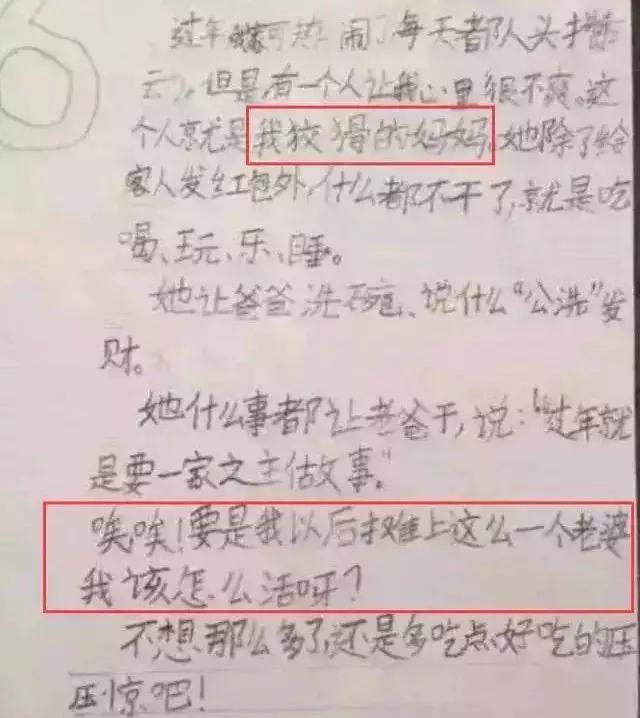 过年我家可热闹了每天都人头攒
动，但是，有一个人让我心里很不爽，这
个人就是我狡猾的妈妈，她除了给
客人发红包外，什么都不干了，就是吃
喝、玩、乐、睡。
她让爸爸洗碗、说什么“公洗”发
财。
她什么事都让老爸干，说：“过年就
是要一家之主做事。”
唉唉！要是我以后摊上这么一个老婆
我该怎么活呀？
不想那么多了，还是多吃点好吃的压
压惊吧！